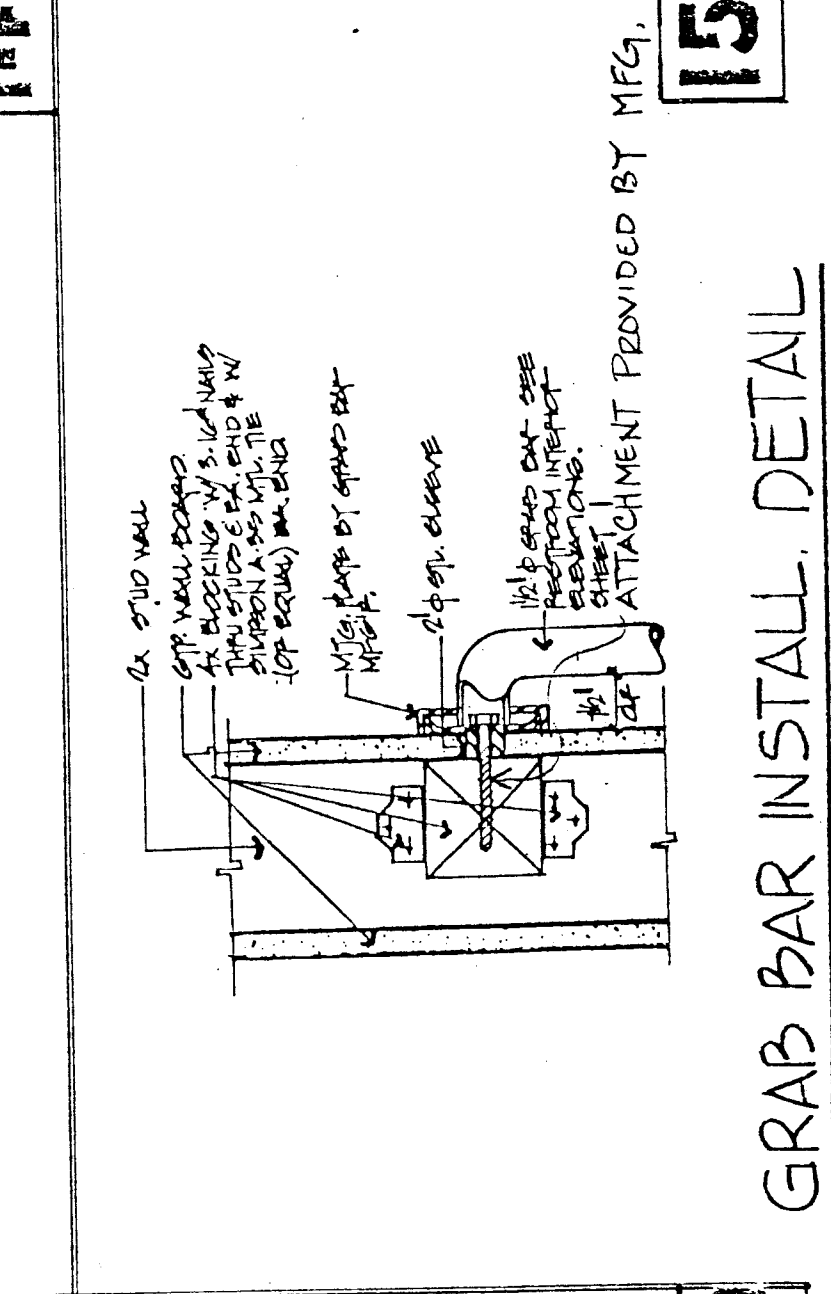 2x STUD WALL
GYP. WALL BOARD.
4x BLOCKING W/ 3-16d NAILS
THRU STUDS @ EA. END & W/
SIMPSON A-35 MTL. TIE
(OR EQUAL) EA. END
MTG. PLATE BY GRAB BAR
MFG'R.
2"φ STL. SLEEVE
1½"φ GRAB BAR SEE
RESTROOM INTERIOR
ELEVATIONS.
SHEET 1
ATTACHMENT PROVIDED BY MFG.
1½"
CLR
GRAB BAR INSTALL. DETAIL
15